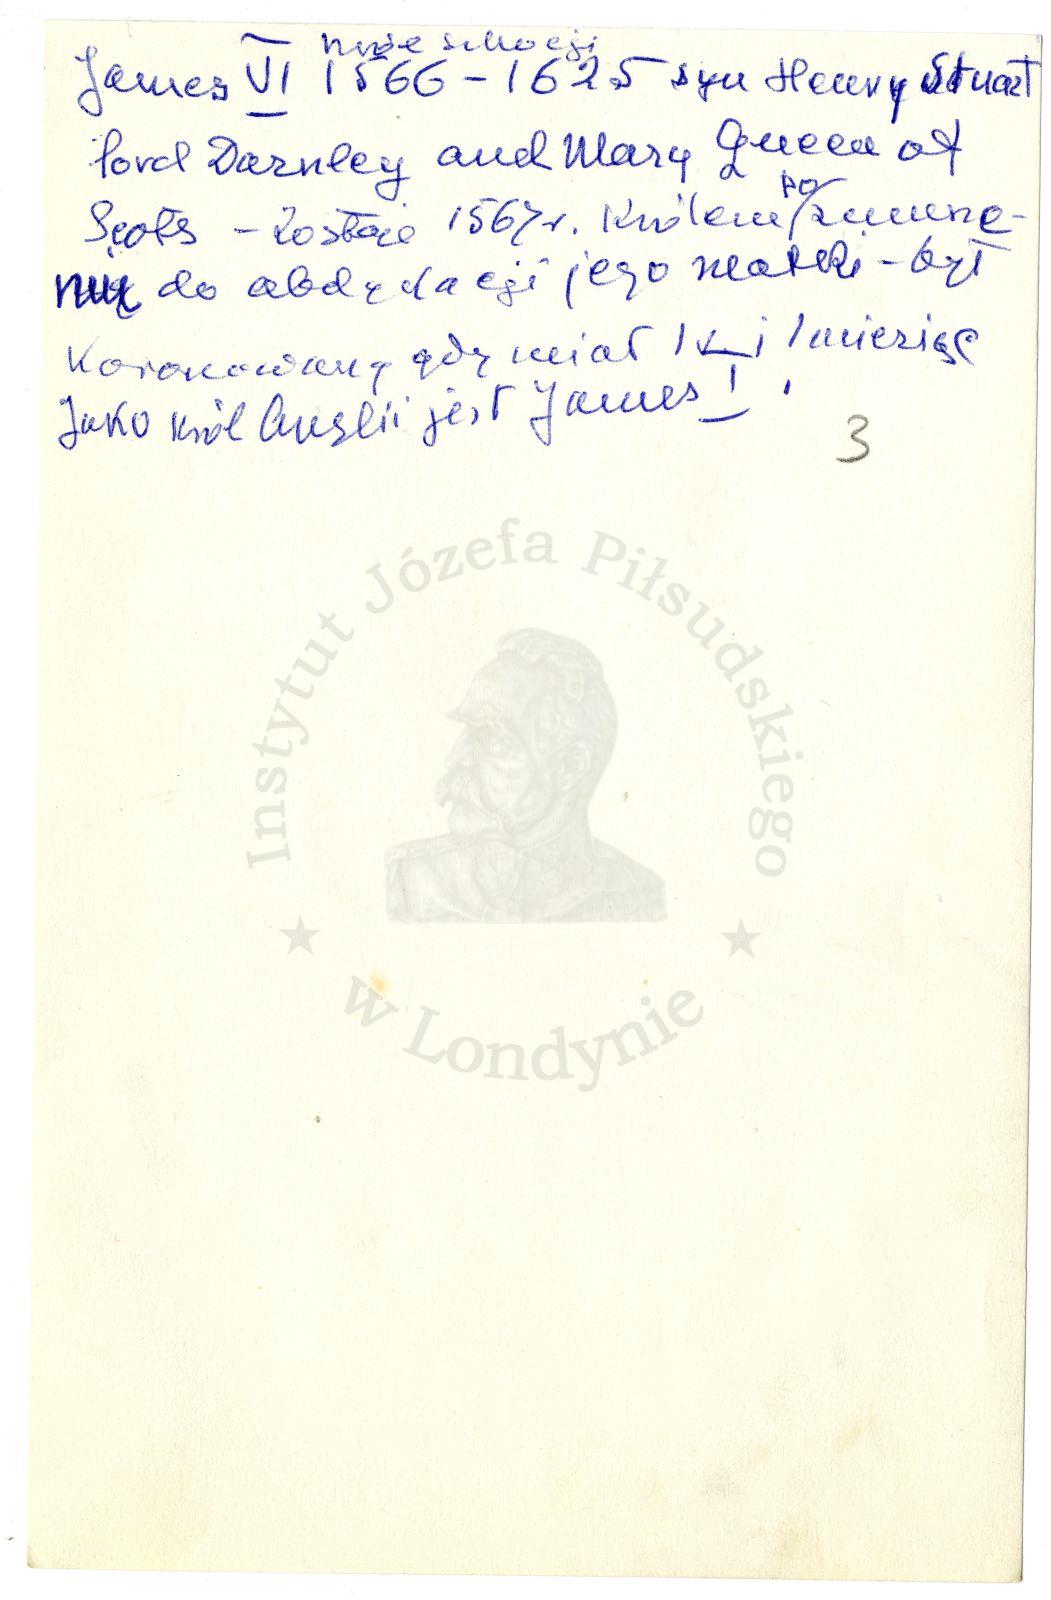 król Szkocji
James VI 1566 – 1625 syn Henry Stuart
lord Darnley and Mary Queen of
Scots – zostaje 1567 r. Królem po zmusze-
niu do abdykacji jego matki – był
Koronowany gdy miał 1 r. i 1 miesiąc
Jako król Anglii jest James I.
3
Instytut Józefa Piłsudskiego
w Londynie